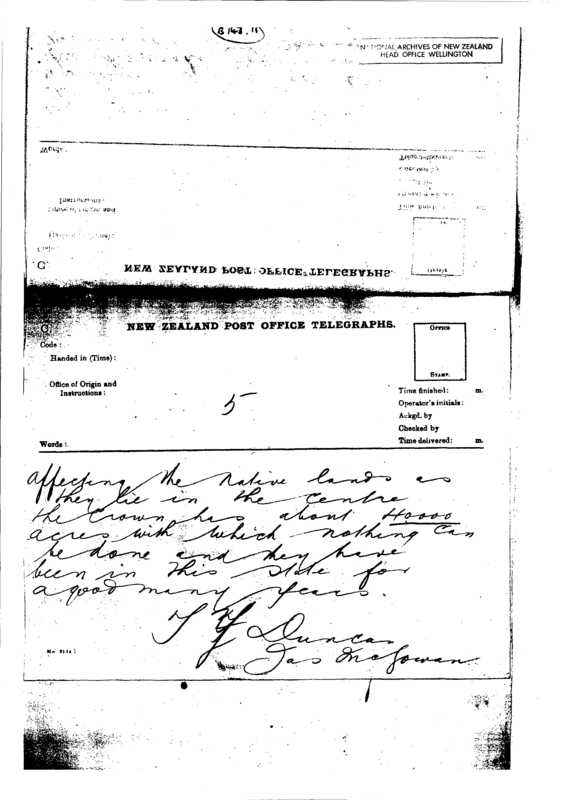 B 148.11
NATIONAL ARCHIVES OF NEW ZEALAND
HEAD OFFICE WELLINGTON
NEW ZEALAND POST OFFICE TELEGRAPHS.
G.
NEW ZEALAND POST OFFICE TELEGRAPHS.
Code :
Handed in (Time) :
Office of Origin and
Instructions :
5
Words :
OFFICE
STAMP.
Time finished: m.
Operator's initials:
Ackgd. by
Checked by
Time delivered: m.
affecting the Native lands as
they lie in the centre
the Crown has about 40000
acres with which nothing can
be done and they have
been in this state for
a good many years.
T Y Duncan
Jas McGowan